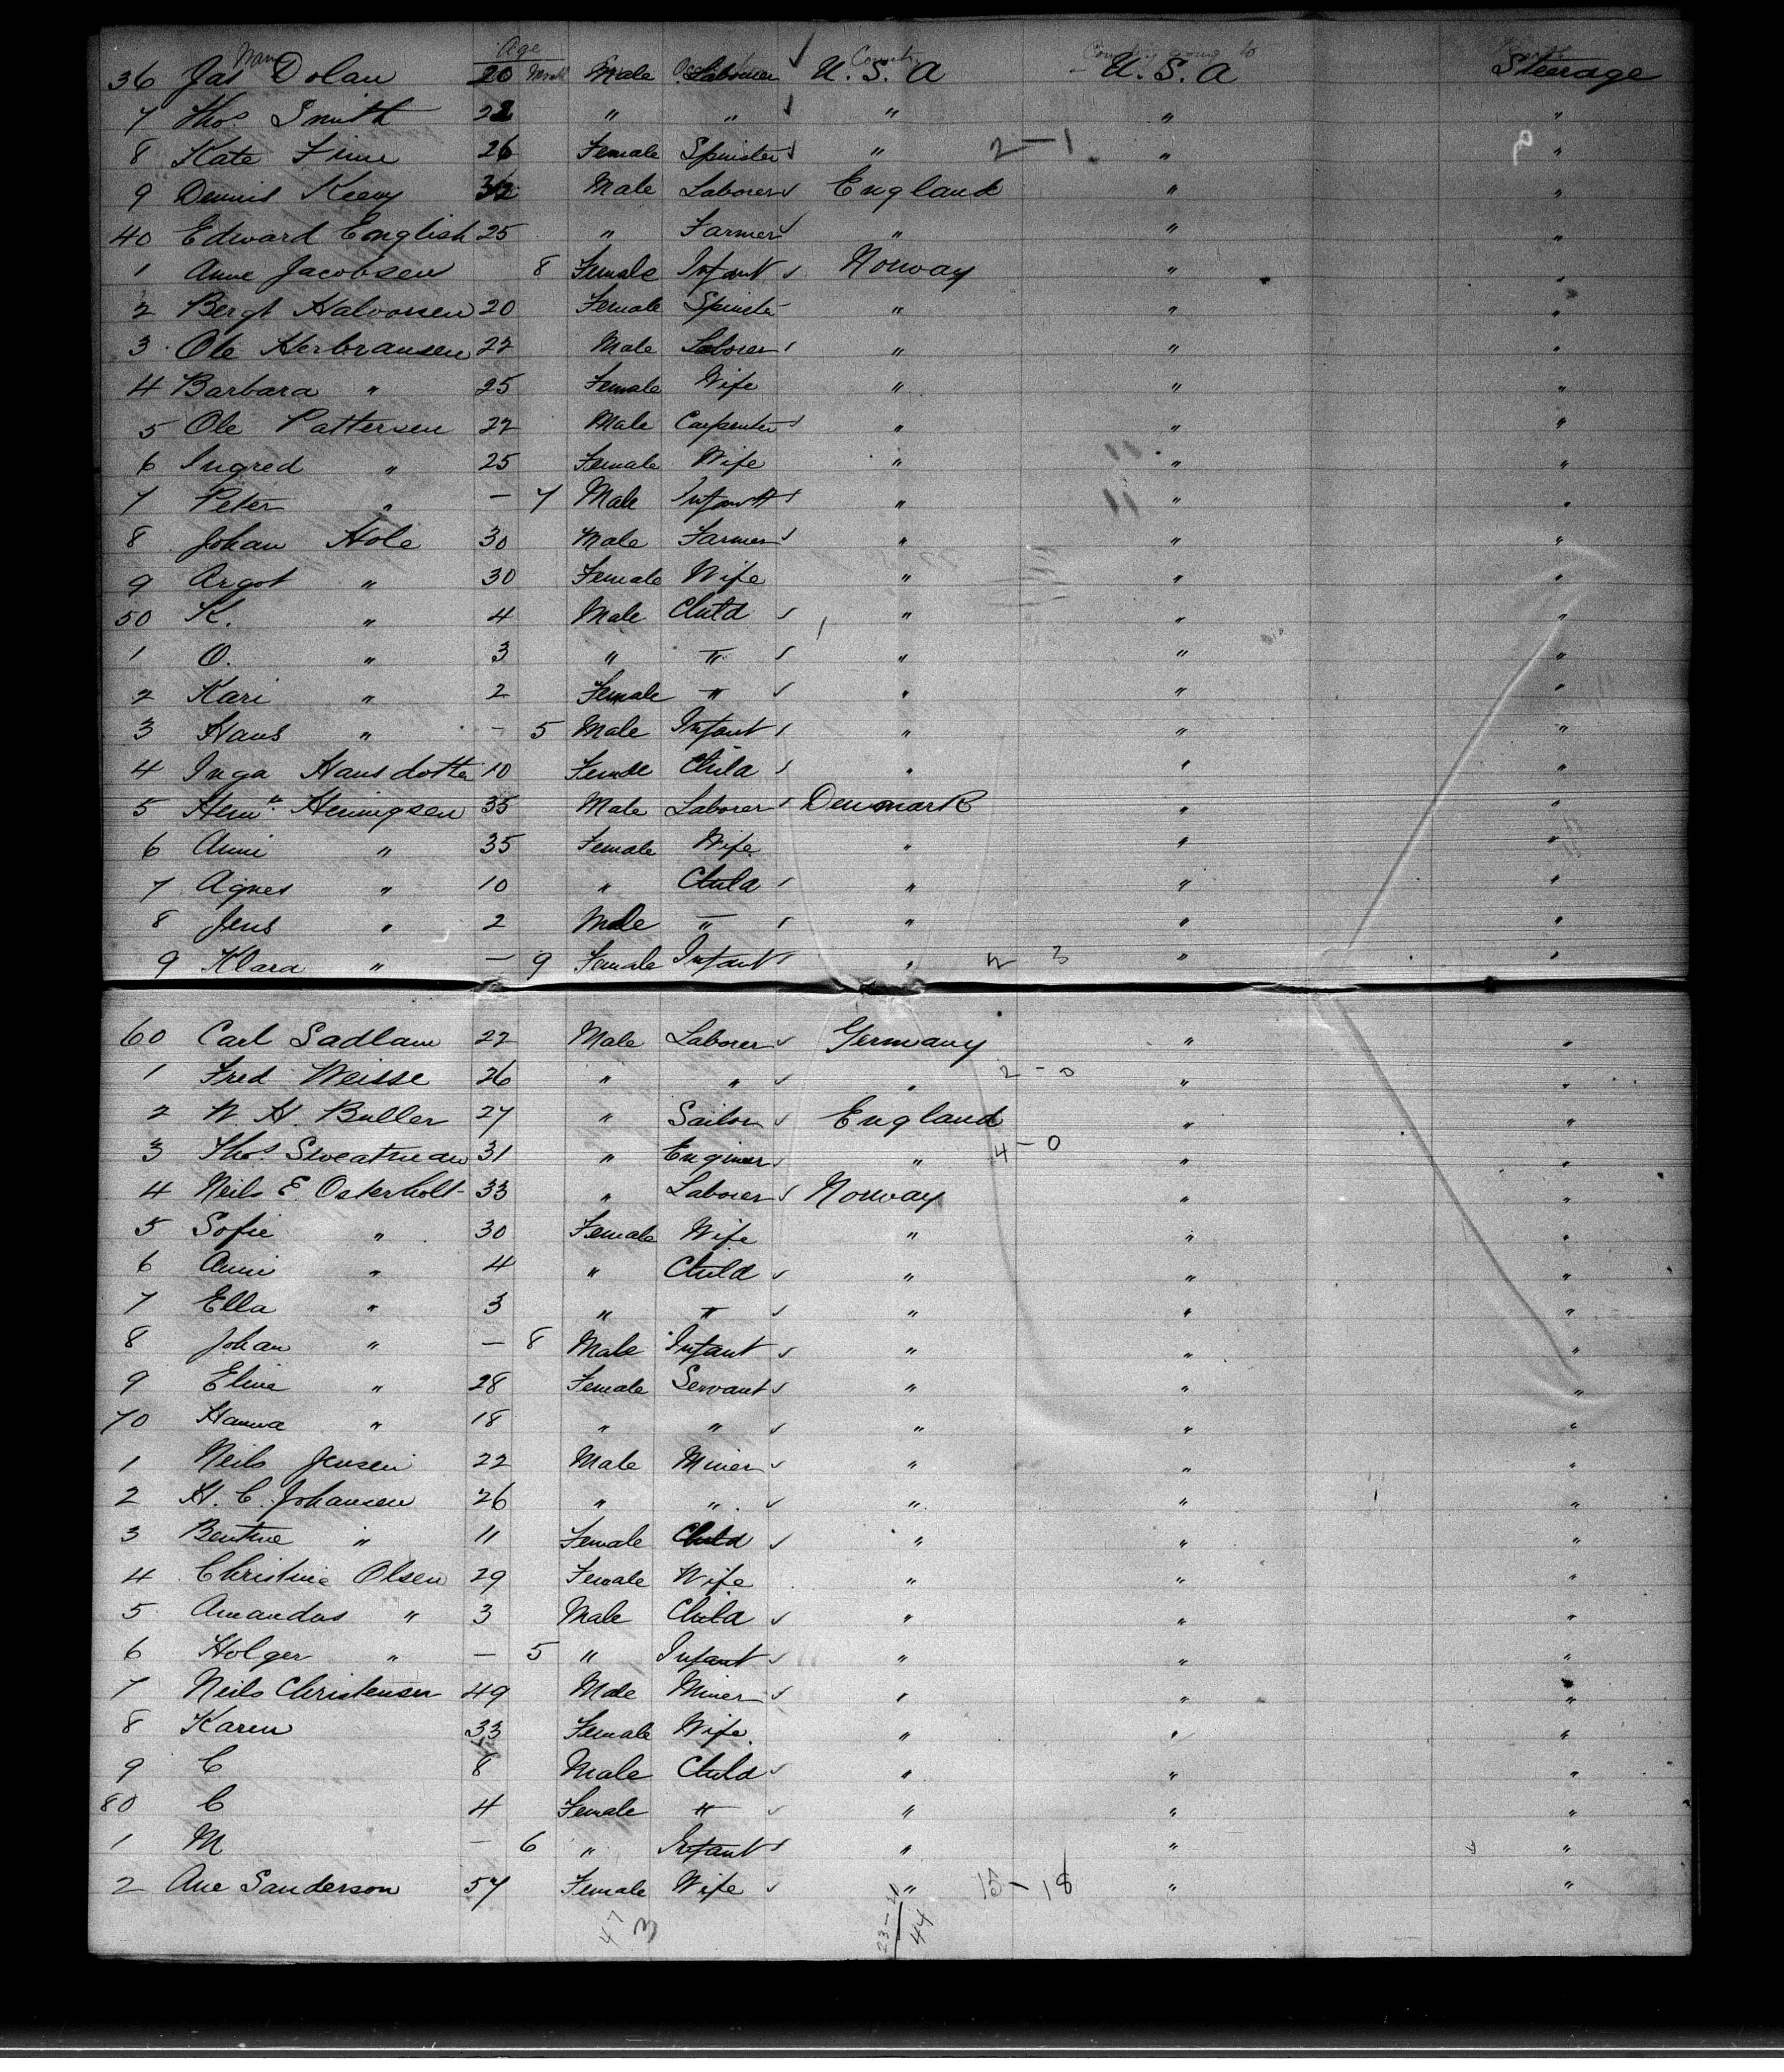 Name Age Month Country Country going to
36 Jas Dolan 20 Male Laborer U. S. A U. S. A Steerage
7 Thos Smith 22 " " " " "
8 Kate Finn 26 Female Spinster " 2-1 " "
9 Dennis Keeny 32 Male Laborer England " "
40 Edward English 25 " Farmer " " "
1 Anne Jacobsen 8 Female Infant Norway " "
2 Bergt Halvorsen 20 Female Spinster " " "
3 Ole Herbransen 22 Male Laborer " " "
4 Barbara " 25 Female Wife " " "
5 Ole Pattersen 22 Male Carpenter " " "
6 Ingred " 25 Female Wife " " "
7 Peter " - 7 Male Infant " " "
8 Johan Hole 30 Male Farmer " " "
9 Argot " 30 Female Wife " " "
50 K. " 4 Male Child " " "
1 O. " 3 " " " " "
2 Kari " 2 Female " " " "
3 Hans " - 5 Male Infant " " "
4 Inga Hansdotter 10 Female Child " " "
5 Henningsen 35 Male Laborer Denmark " "
6 Anni " 35 Female Wife " " "
7 Agnes " 10 " Child " " "
8 Jens " 2 Male " " " "
9 Klara " - 9 Female Infant " 2 3 " "
60 Carl Sadlam 22 Male Laborer Germany " "
1 Fred Weisse 26 " " " 2-0 " "
2 W. H. Buller 27 " Sailor England " "
3 Thos. Sweatman 31 " Engineer " 4-0 " "
4 Neils E. Osterholt 33 " Laborer Norway " "
5 Sofie " 30 Female Wife " " "
6 Anni " 4 " Child " " "
7 Ella " 3 " " " " "
8 Johan " - 8 Male Infant " " "
9 Eline " 28 Female Servant " " "
70 Hanna " 18 " " " " "
1 Neils Jensen 22 Male Miner " " "
2 H. C. Johansen 26 " " " " "
3 Bentine " 11 Female Child " " "
4 Christine Olsen 29 Female Wife " " "
5 Amandus " 3 Male Child " " "
6 Holger " - 5 " Infant " " "
7 Neils Christensen 49 Male Miner " " "
8 Karen 33 Female Wife " " "
9 C 8 Male Child " " "
80 C 4 Female " " " "
1 M - 6 " Infant " " "
2 Ane Sanderson 57 Female Wife " 15-18 " "
47 3 23-21 44